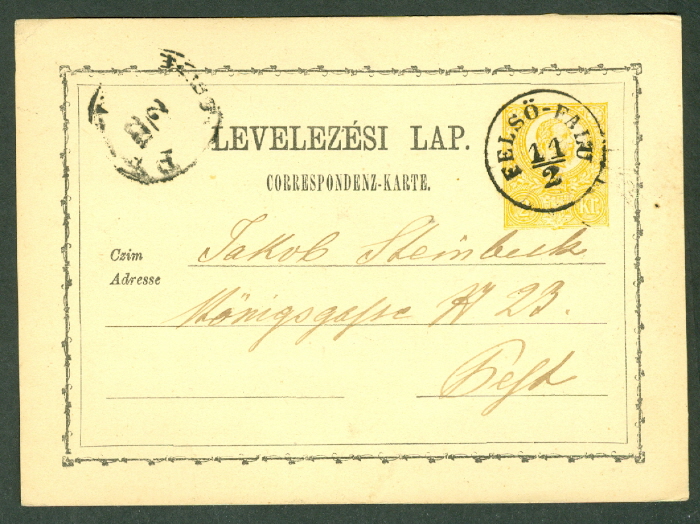 LEVELEZÉSI LAP.
CORRESPONDENZ-KARTE.
FELSÖ-FALU
11/2
Kr.
Czim
Adresse
Jakob Steinbeck
Königsgasse № 23.
Pest